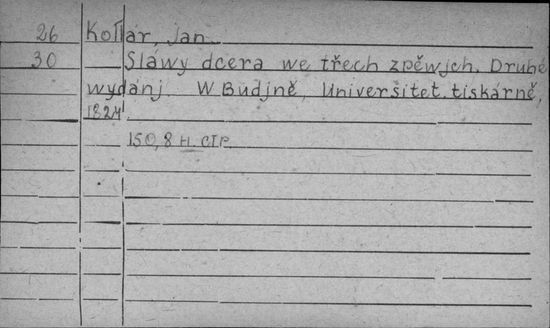 26 Kollár, Jan
30 Sláwy dcera we třech zpěwjch. Druhé
wydánj. W Budjně, Universitet. tiskárně,
1824
150, 8 н. стр.